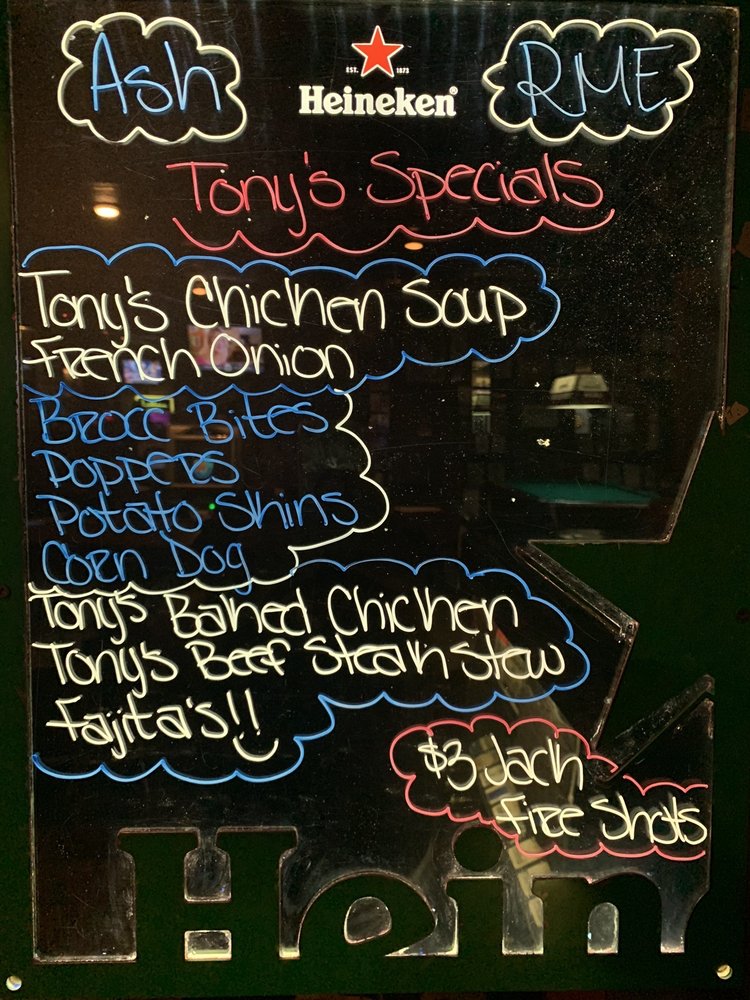 Ash
EST. 1873
Heineken
RME
Tony's Specials
Tony's Chicken Soup
French Onion
Brocc Bites
Poppers
Potato Skins
Corn Dog
Tony's Baked Chicken
Tony's Beef Steak Stew
Fajita's!!
$3 Jack
Fire Shots
Hein